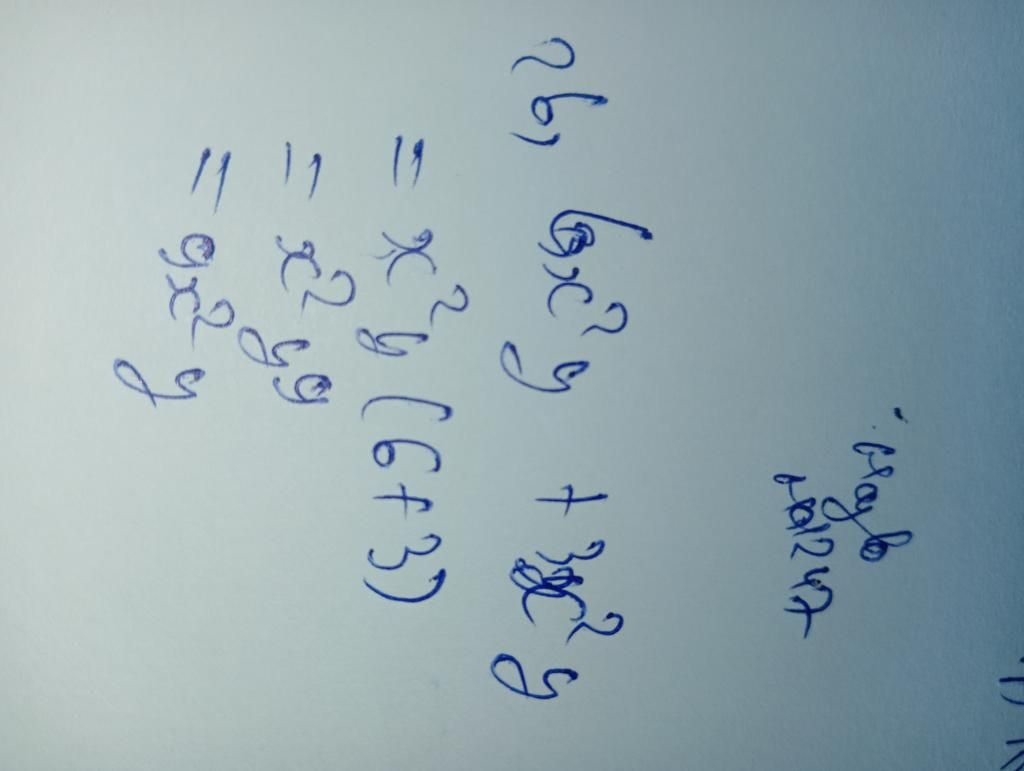 2b, 6x²y + 3x²y
= x²y (6+3)
= x²y9
= 9x²y